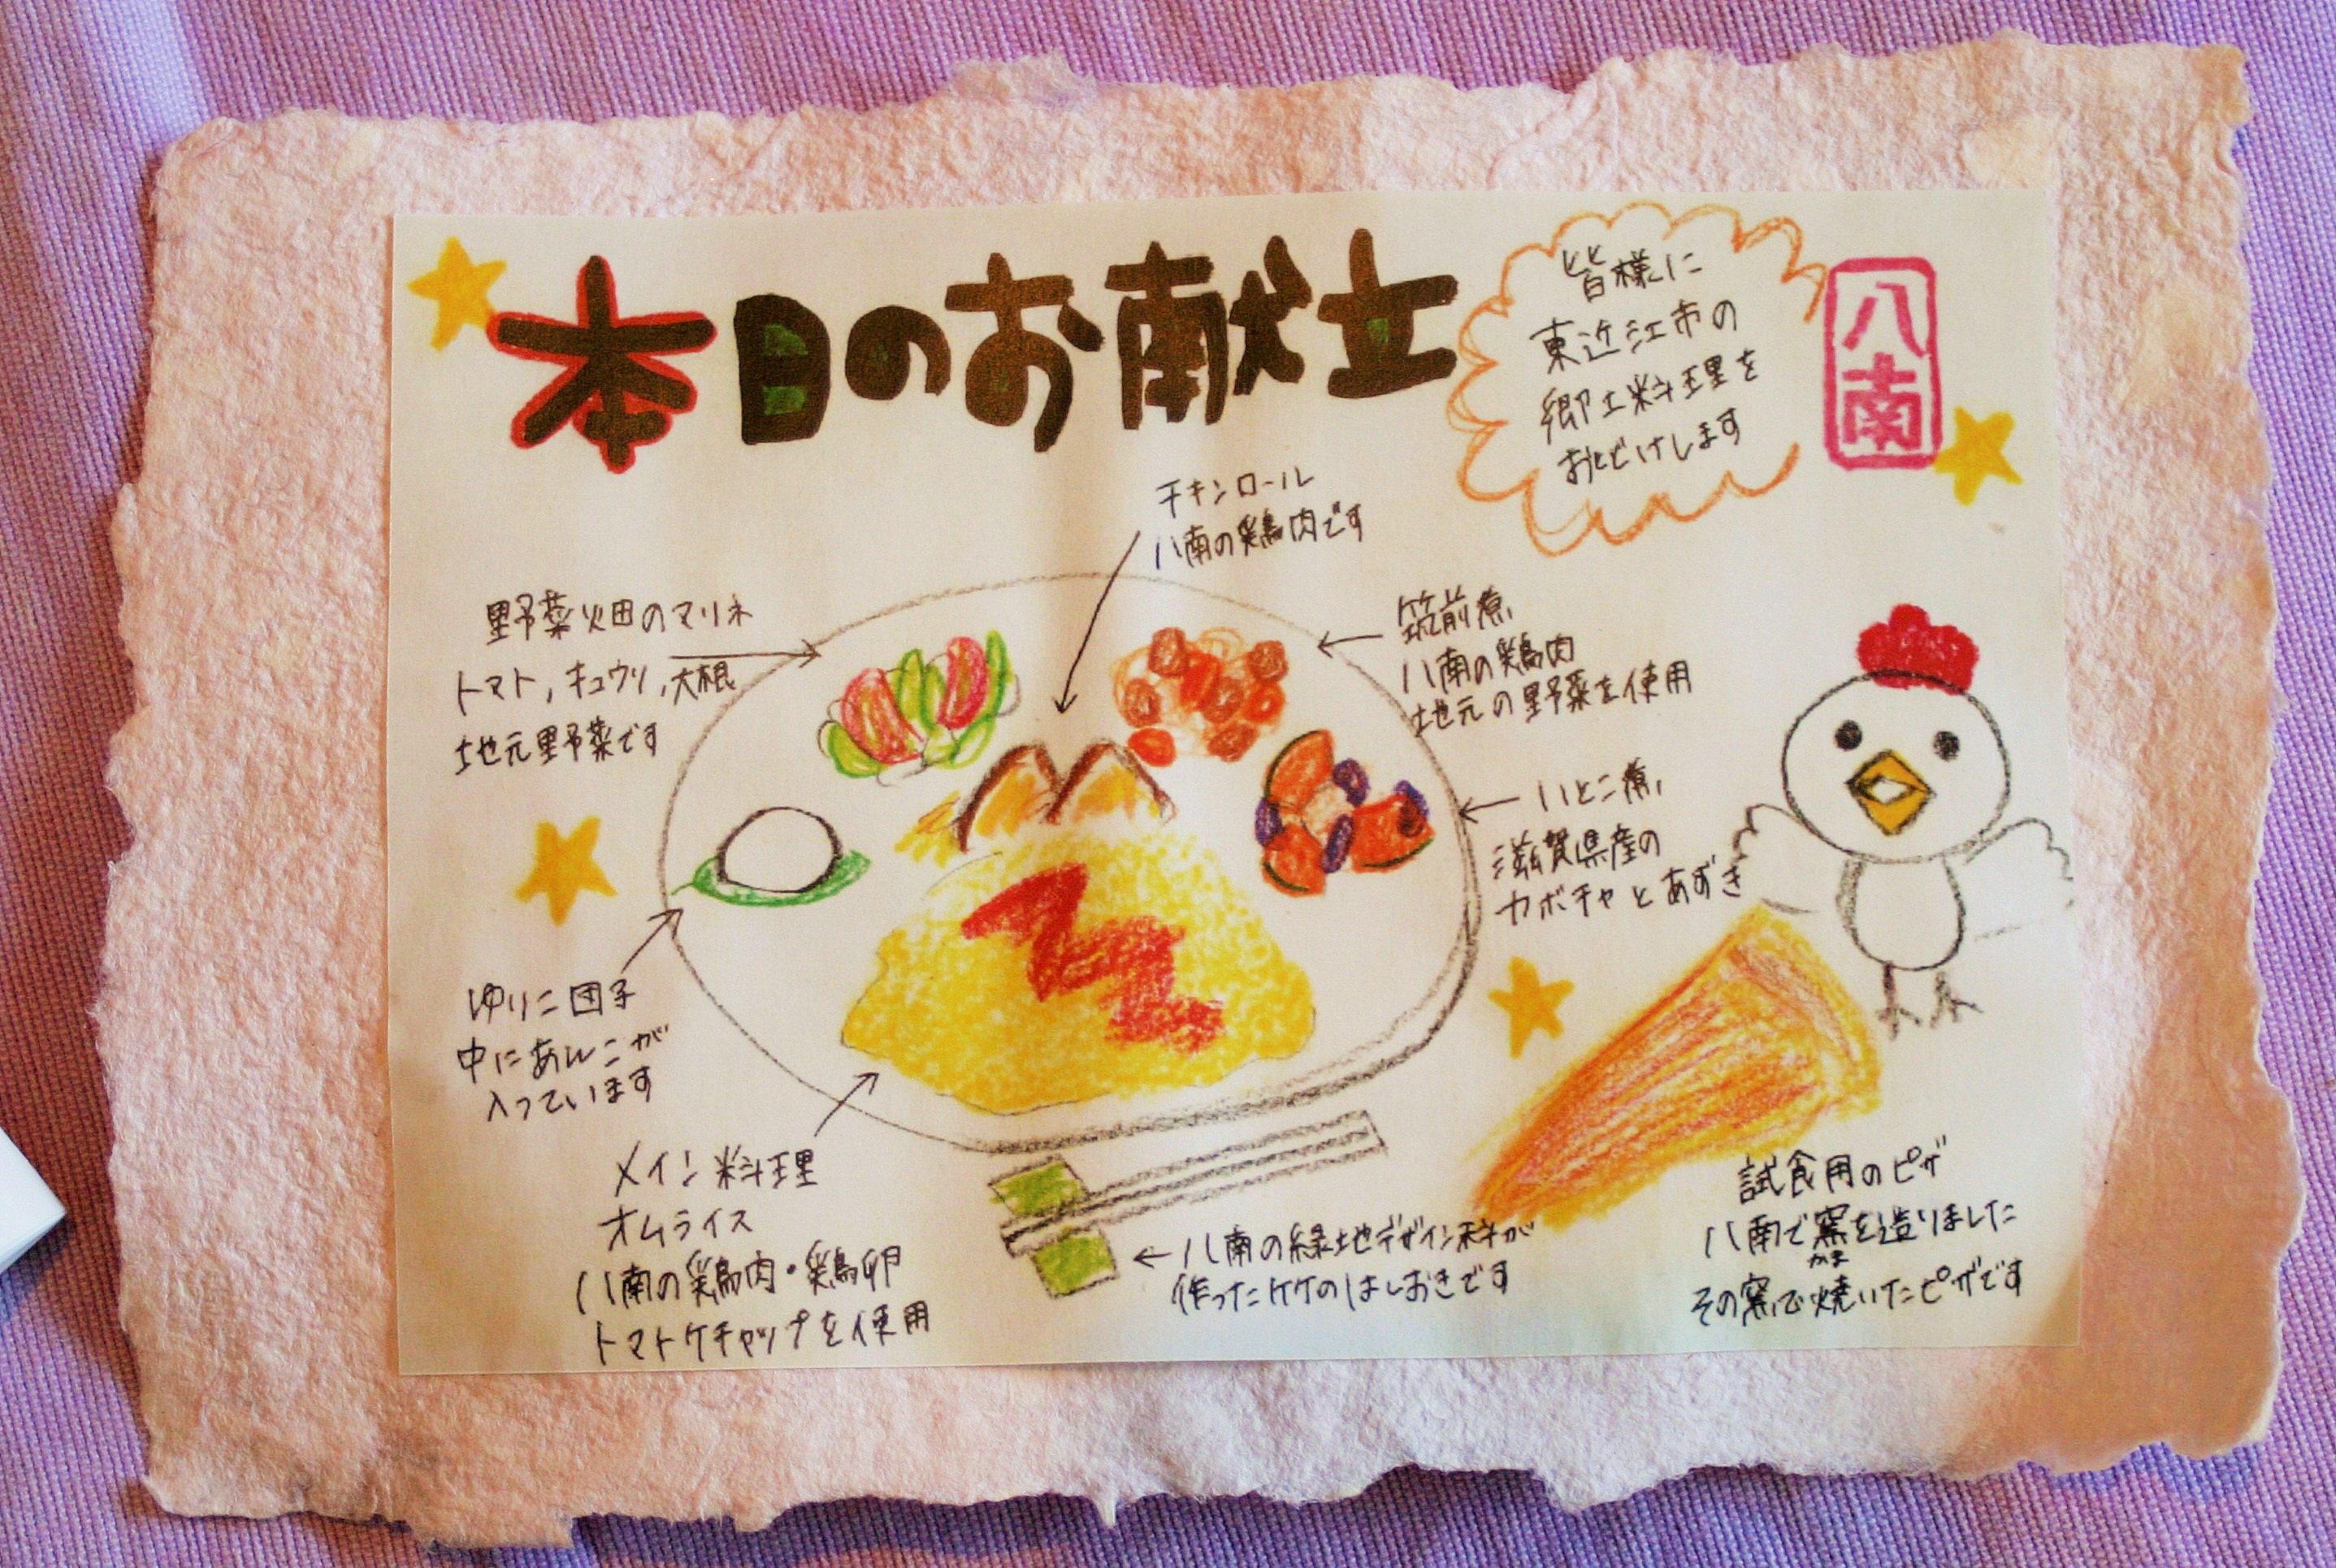 本日のお献立
皆様に
東近江市の
郷土料理を
おとどけします
八南
チキンロール
八南の鶏肉です
野菜畑のマリネ
トマト,キュウリ,大根
地元野菜です
筑前煮
八南の鶏肉
地元の野菜を使用
いとこ煮
滋賀県産の
カボチャとあずき
ゆりこ団子
中にあんこが
入っています
メイン料理
オムライス
八南の鶏肉・鶏卵
トマトケチャップを使用
八南の緑地デザイン科が
作ったケケのはしおきです
試食用のピザ
八南で窯を造りました
かま
その窯で焼いたピザです